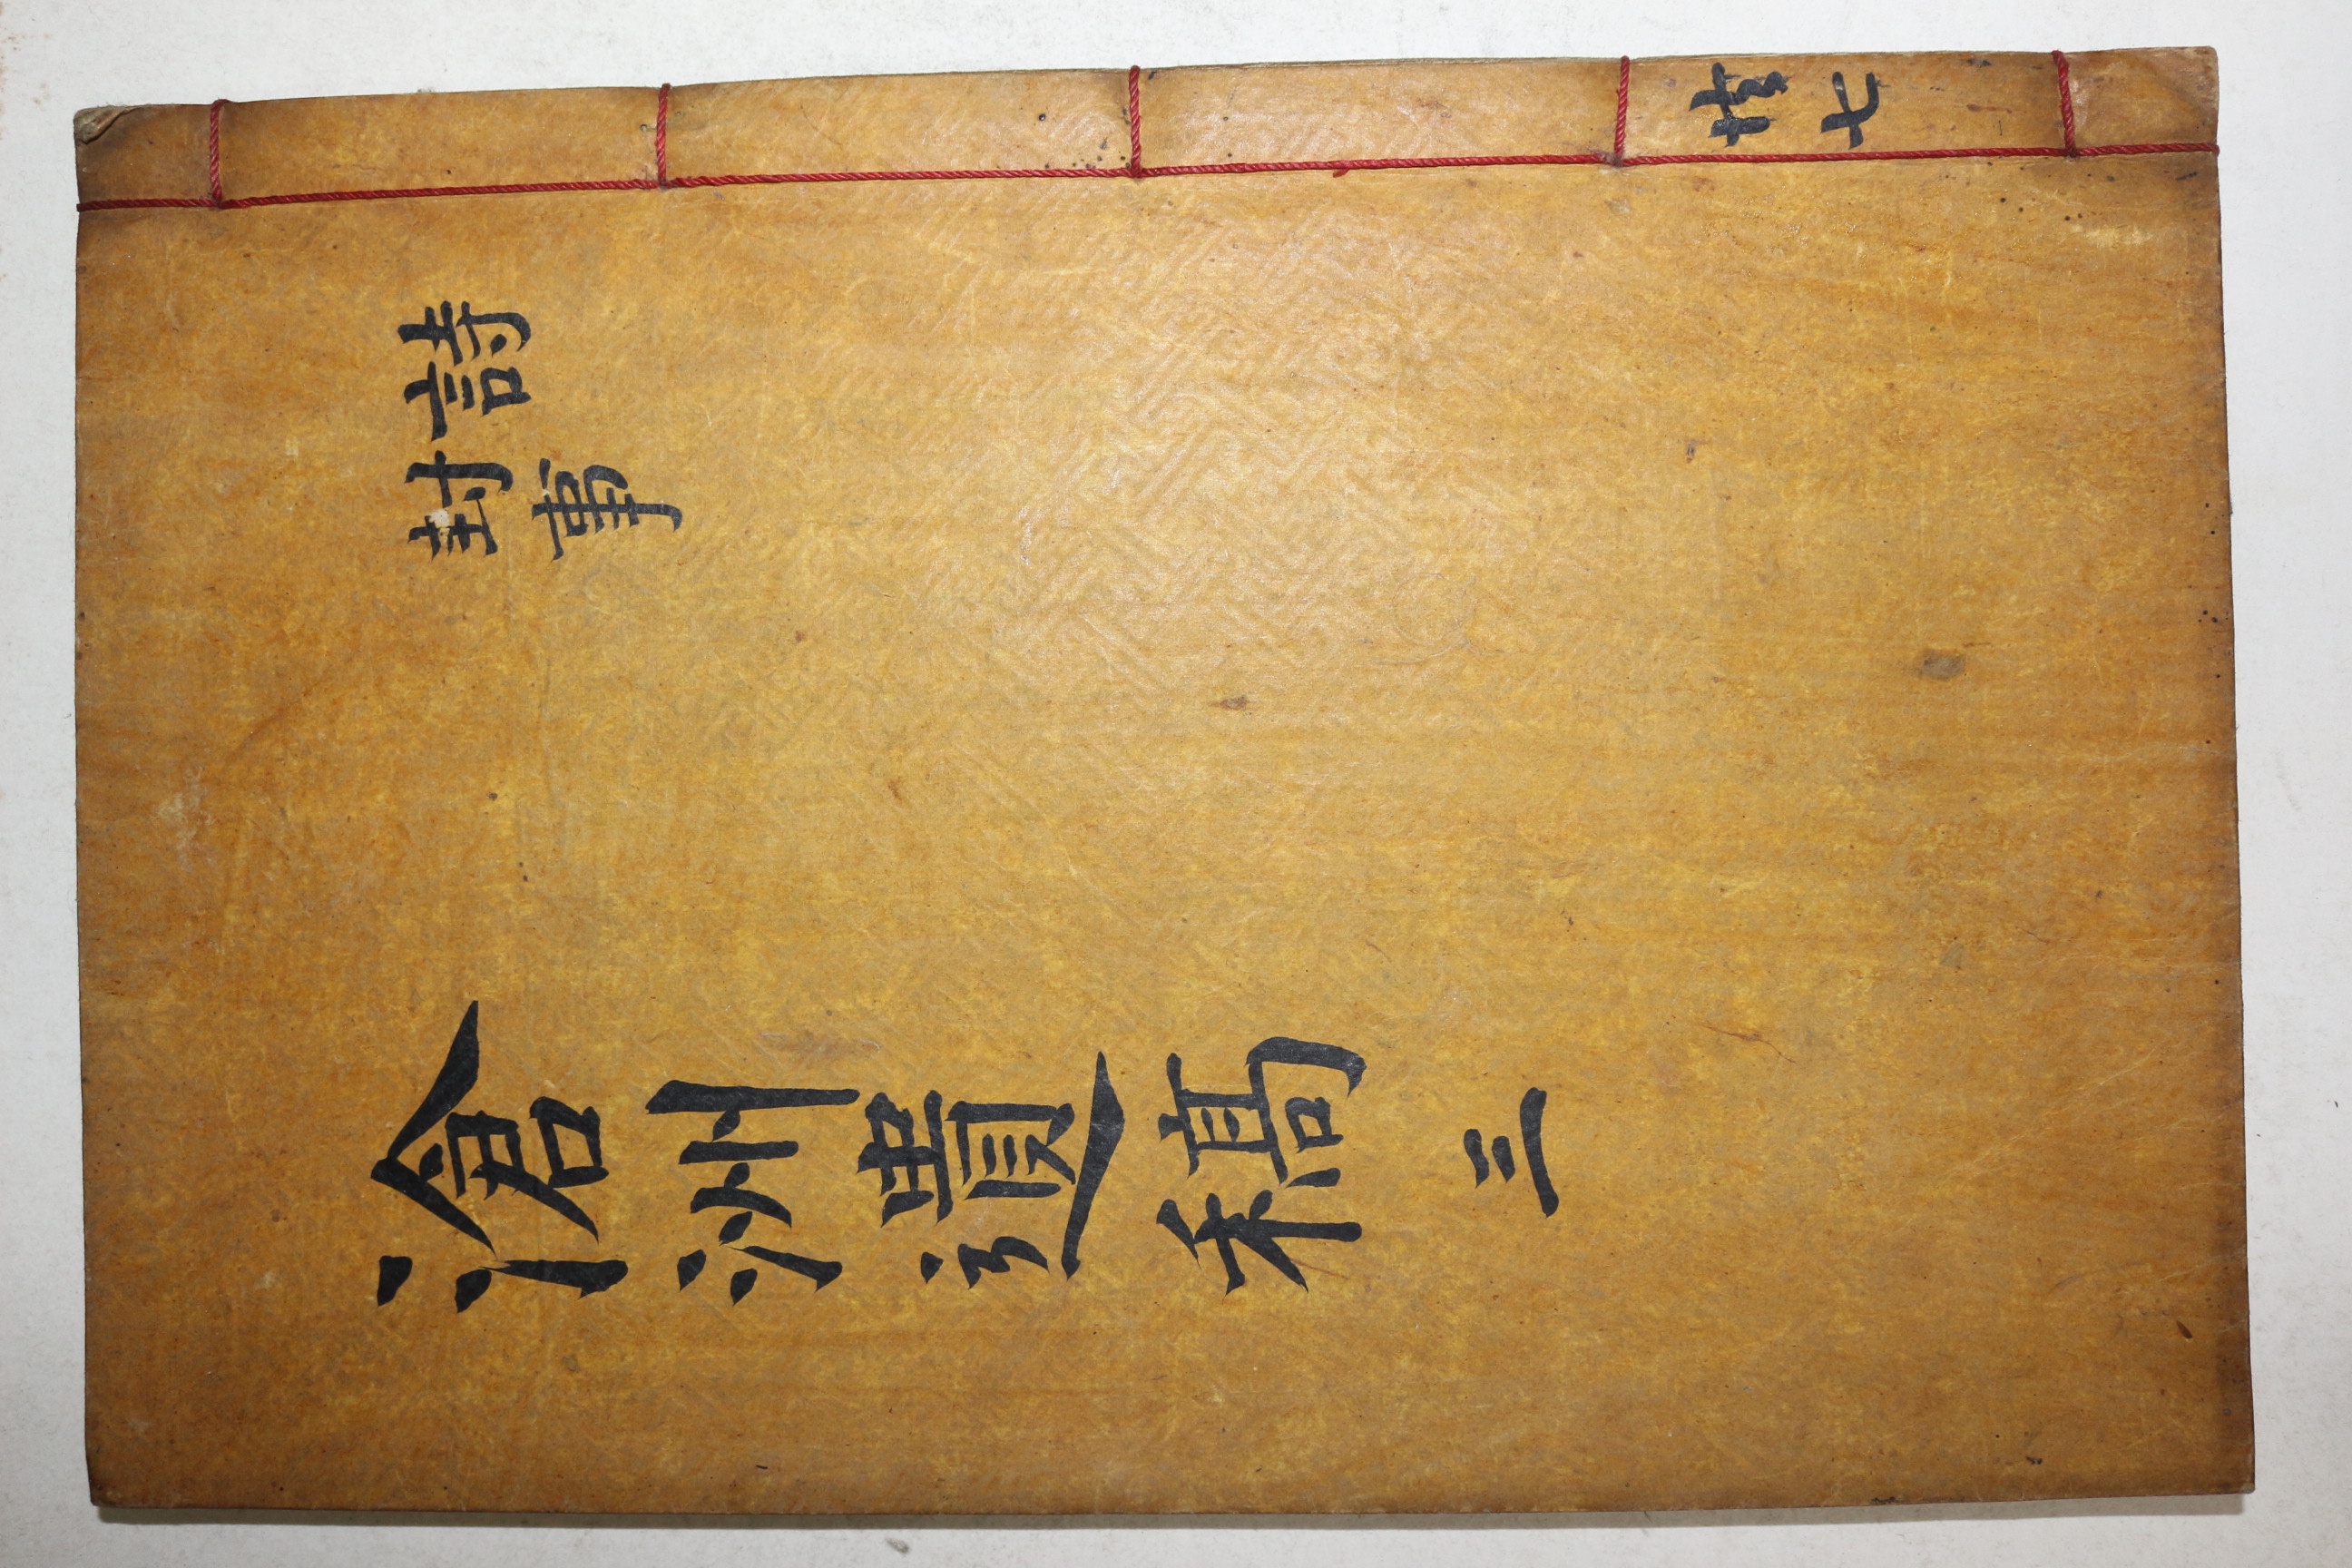 共七
詩
封事
滄洲遺稿 三